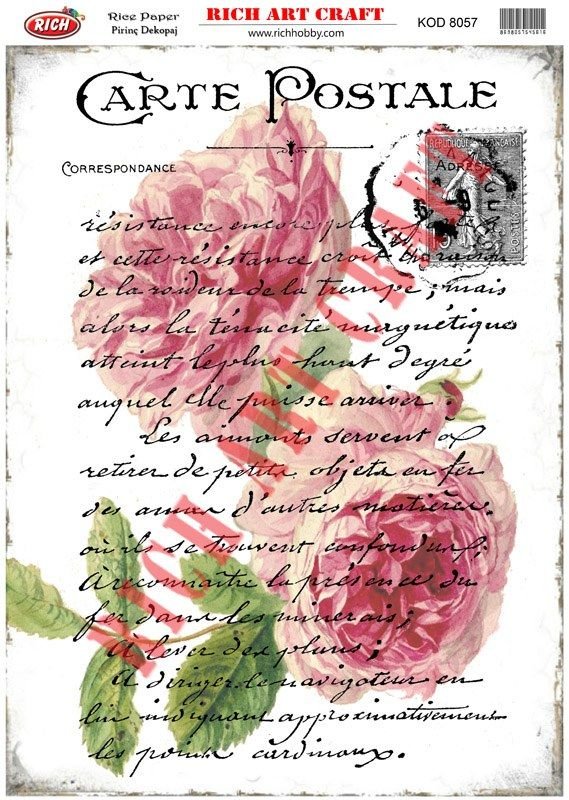 RICH
Rice Paper
Pirinç Dekopaj
RICH ART CRAFT
www.richhobby.com
KOD 8057
CARTE POSTALE
CORRESPONDANCE
REPUBLIQUE FRANÇAISE
POSTES
résistance encore plus
et cette résistance croît
de la roideur de la trempe; mais
alors la ténacité magnétique
atteint le plus haut degré
auquel elle puisse arriver.
Les aimants servent à
retirer de petits objets en fer
des amas d'autres matières
où ils se trouvent confondus;
À reconnaître la présence du
fer dans les minerais;
À lever des plans;
À diriger le navigateur en
lui indiquant approximativement
les points cardinaux.
RICH ART CRAFT